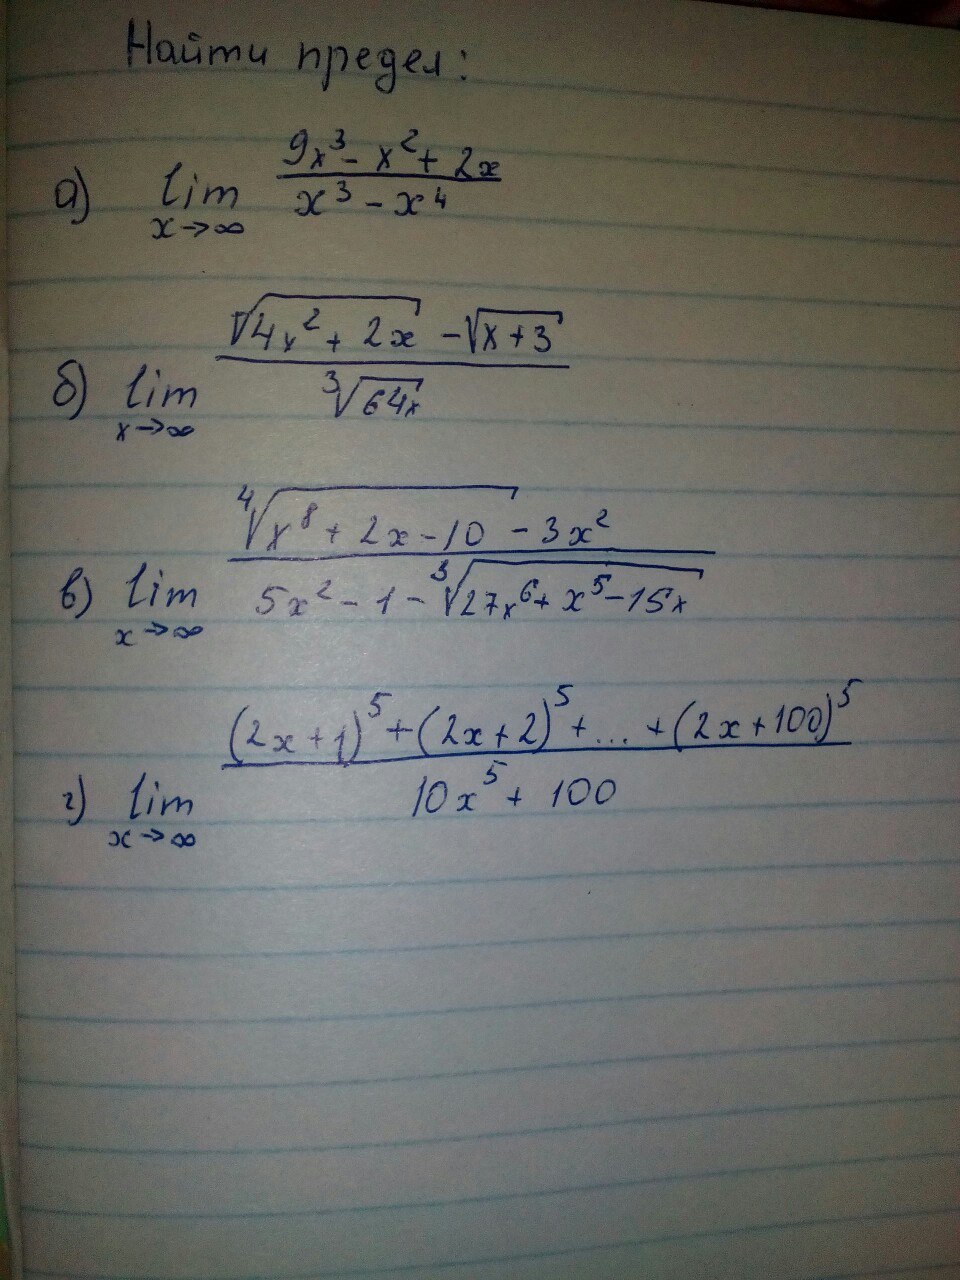 Найти предел:
а) lim x→∞ (9x³ - x² + 2x) / (x³ - x⁴)
б) lim x→∞ (√(4x² + 2x) - √(x + 3)) / ∛(64x)
в) lim x→∞ (∜(x⁸ + 2x - 10) - 3x²) / (5x² - 1 - ∛(27x⁶ + x⁵ - 15x))
г) lim x→∞ ((2x + 1)⁵ + (2x + 2)⁵ + ... + (2x + 100)⁵) / (10x⁵ + 100)